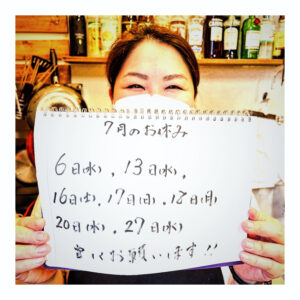 7月のお休み
6日(水)、13日(水)、
16日(土)、17日(日)、18日(月)
20日(水)、27日(水)
宜しくお願いします!!